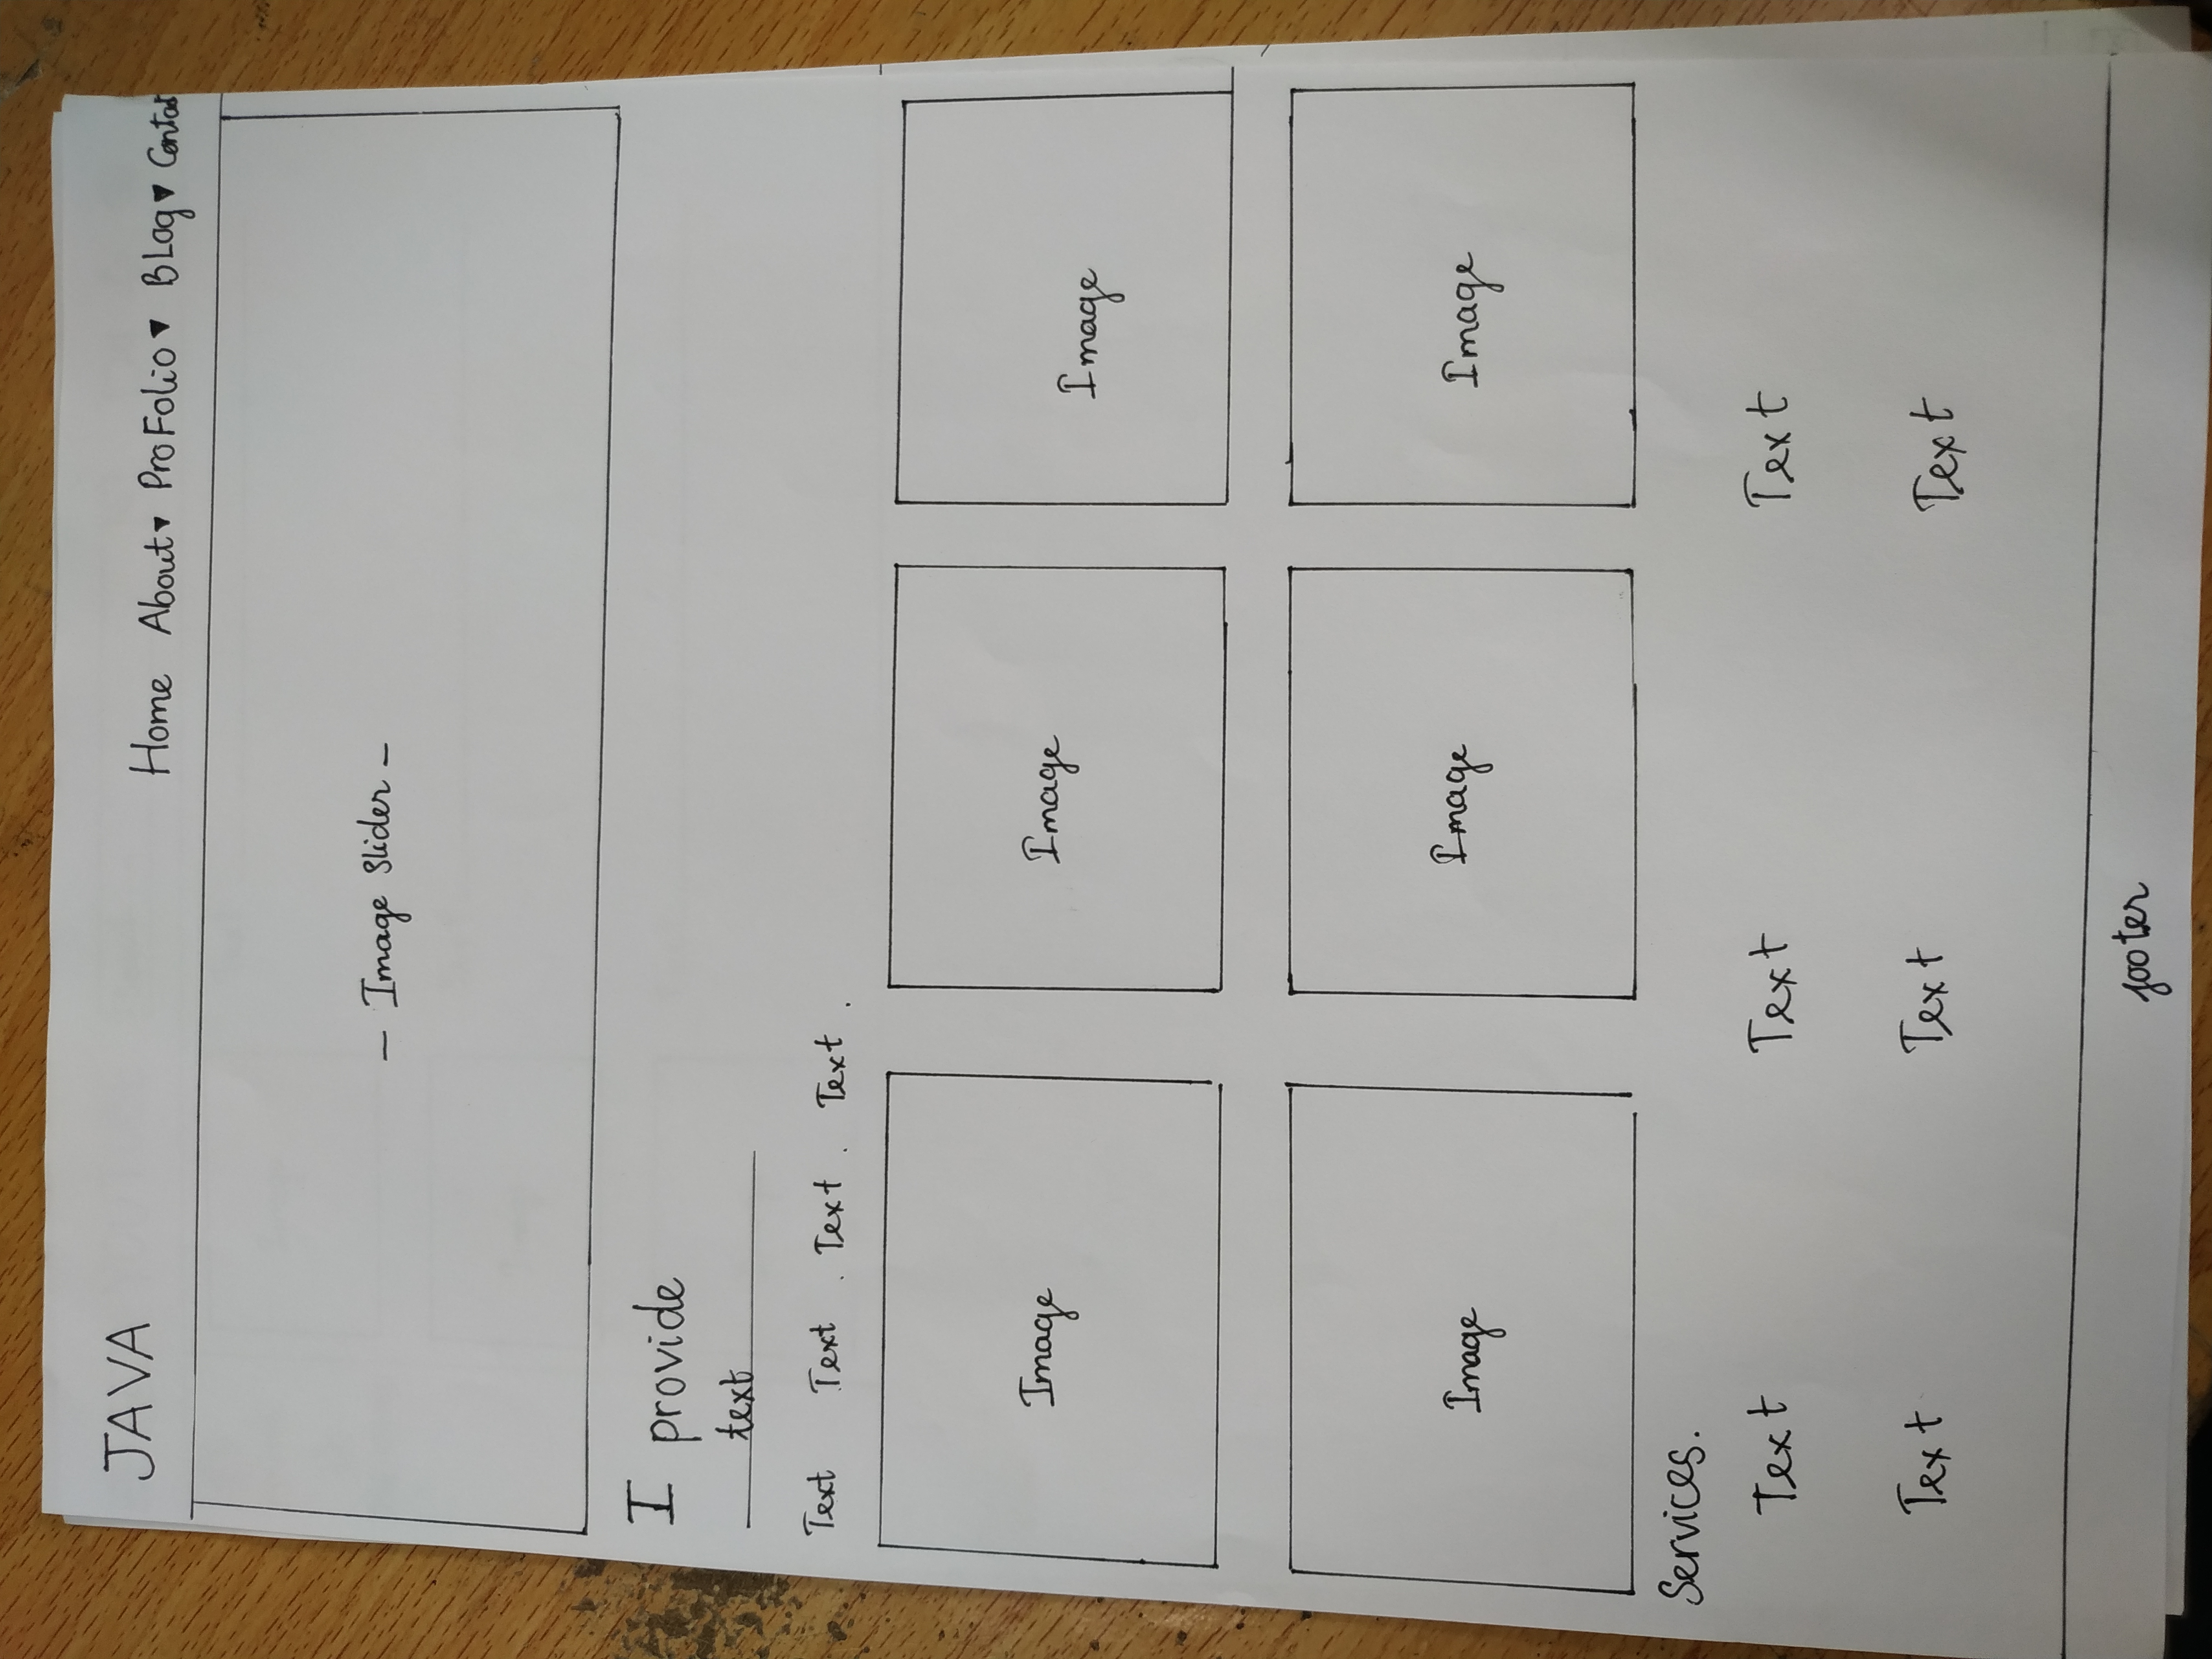 JAVA
Home About▼ ProFolio ▼ BLog▼ Contact
– Image Slider –
I provide
text
Text Text . Text . Text .
Image Image Image
Image Image Image
Services.
Text Text Text
Text Text Text
footer